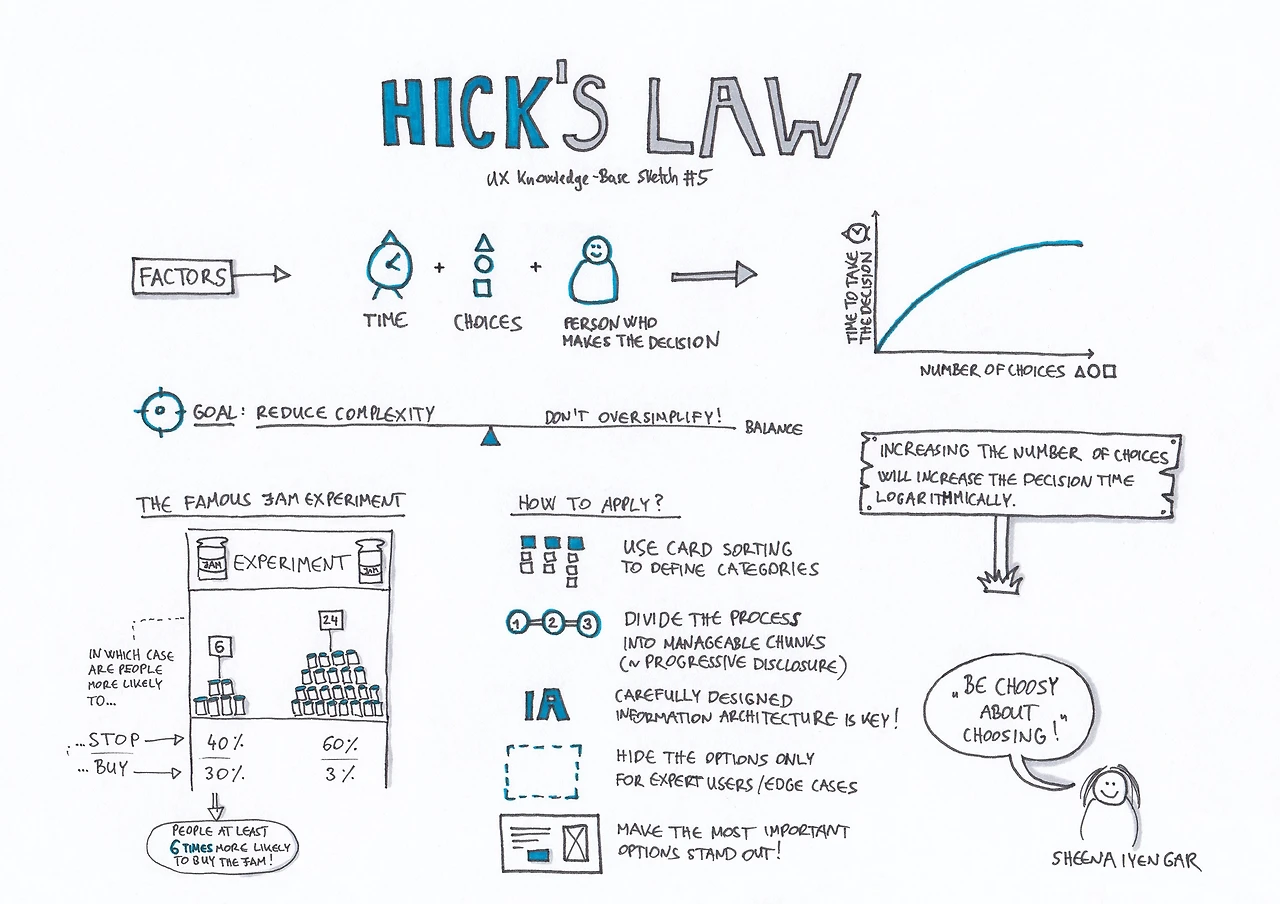 HICK'S LAW
UX Knowledge-Base Sketch #5
FACTORS
TIME
+
CHOICES
+
PERSON WHO
MAKES THE DECISION
TIME TO TAKE
THE DECISION
NUMBER OF CHOICES
GOAL: REDUCE COMPLEXITY
DON'T OVERSIMPLIFY!
BALANCE
INCREASING THE NUMBER OF CHOICES
WILL INCREASE THE DECISION TIME
LOGARITHMICALLY.
THE FAMOUS JAM EXPERIMENT
JAM
EXPERIMENT
JAM
IN WHICH CASE
ARE PEOPLE
MORE LIKELY
TO...
6
24
...STOP
40%
60%
...BUY
30%
3%
PEOPLE AT LEAST
6 TIMES MORE LIKELY
TO BUY THE JAM!
HOW TO APPLY?
USE CARD SORTING
TO DEFINE CATEGORIES
1 2 3
DIVIDE THE PROCESS
INTO MANAGEABLE CHUNKS
(~ PROGRESSIVE DISCLOSURE)
IA
CAREFULLY DESIGNED
INFORMATION ARCHITECTURE IS KEY!
HIDE THE OPTIONS ONLY
FOR EXPERT USERS/EDGE CASES
MAKE THE MOST IMPORTANT
OPTIONS STAND OUT!
„BE CHOOSY
ABOUT
CHOOSING!"
SHEENA IYENGAR